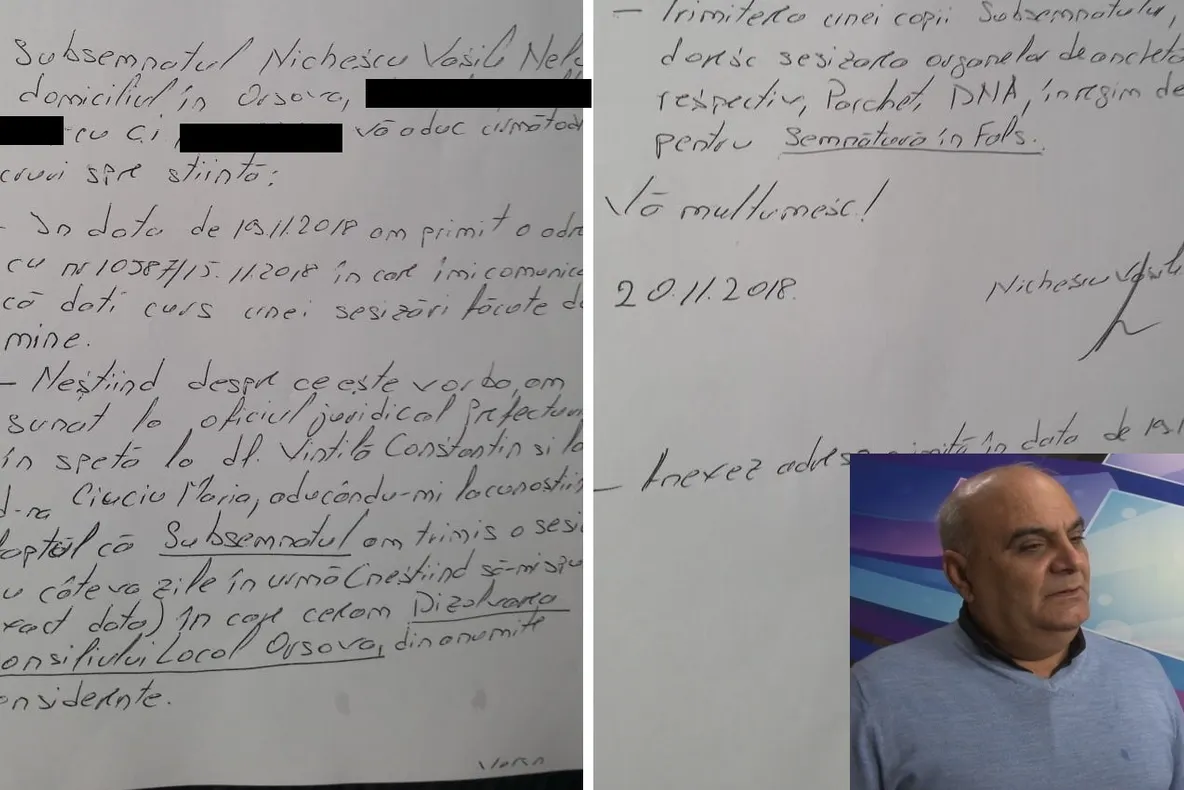 Subsemnatul Nichescu Vasile Nelu
domiciliul în Orsova,
cu Ci vă aduc următoar
cruri spre stiintă:
- In data de 19.11.2018 am primit o adre
cu nr 10587/15.11.2018 în care îmi comunica
că dati curs unei sesizări făcute de
mine.
- Neștiind despre ce este vorba, am
sunat la oficiul juridical Prefectur
în spetă la dl. Vintilă Constantin si la
d-na Ciuciu Maria, aducându-mi la cunostiin
faptul că Subsemnatul am trimis o sesi
u câteva zile în urmă (nestiind să-mi spu
xact data) în care ceram Dizolvarea
onsiliului Local Orsova, din anumite
onsiderente.
- Trimiterea unei copii Subsemnatului,
doresc sesizarea organelor de anchetă
respectiv, Parchet, DNA, în regim de
pentru Semnătură în Fals.
Vă multumesc!
20.11.2018.
Nichescu Vasile
- Anexez adresa primită în data de 19.1